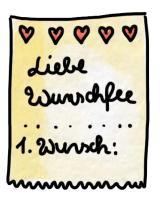 Liebe
Wunschfee
1. Wunsch: